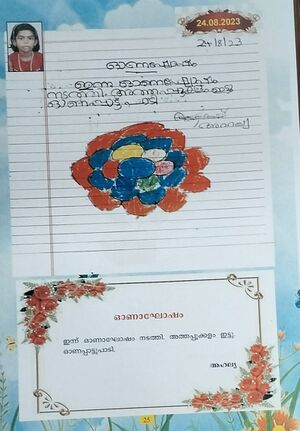 24.08.2023
24/8/23
ഓണാഘോഷം
ഇന്ന് ഓണാഘോഷം
നടത്തി. അത്തപ്പൂക്കളം ഇട്ടു
ഓണപ്പാട്ട് പാടി.
ഓണാഘോഷം
ഇന്ന് ഓണാഘോഷം നടത്തി. അത്തപ്പൂക്കളം ഇട്ടു.
ഓണപ്പാട്ടുപാടി.
അഹല്യ
25